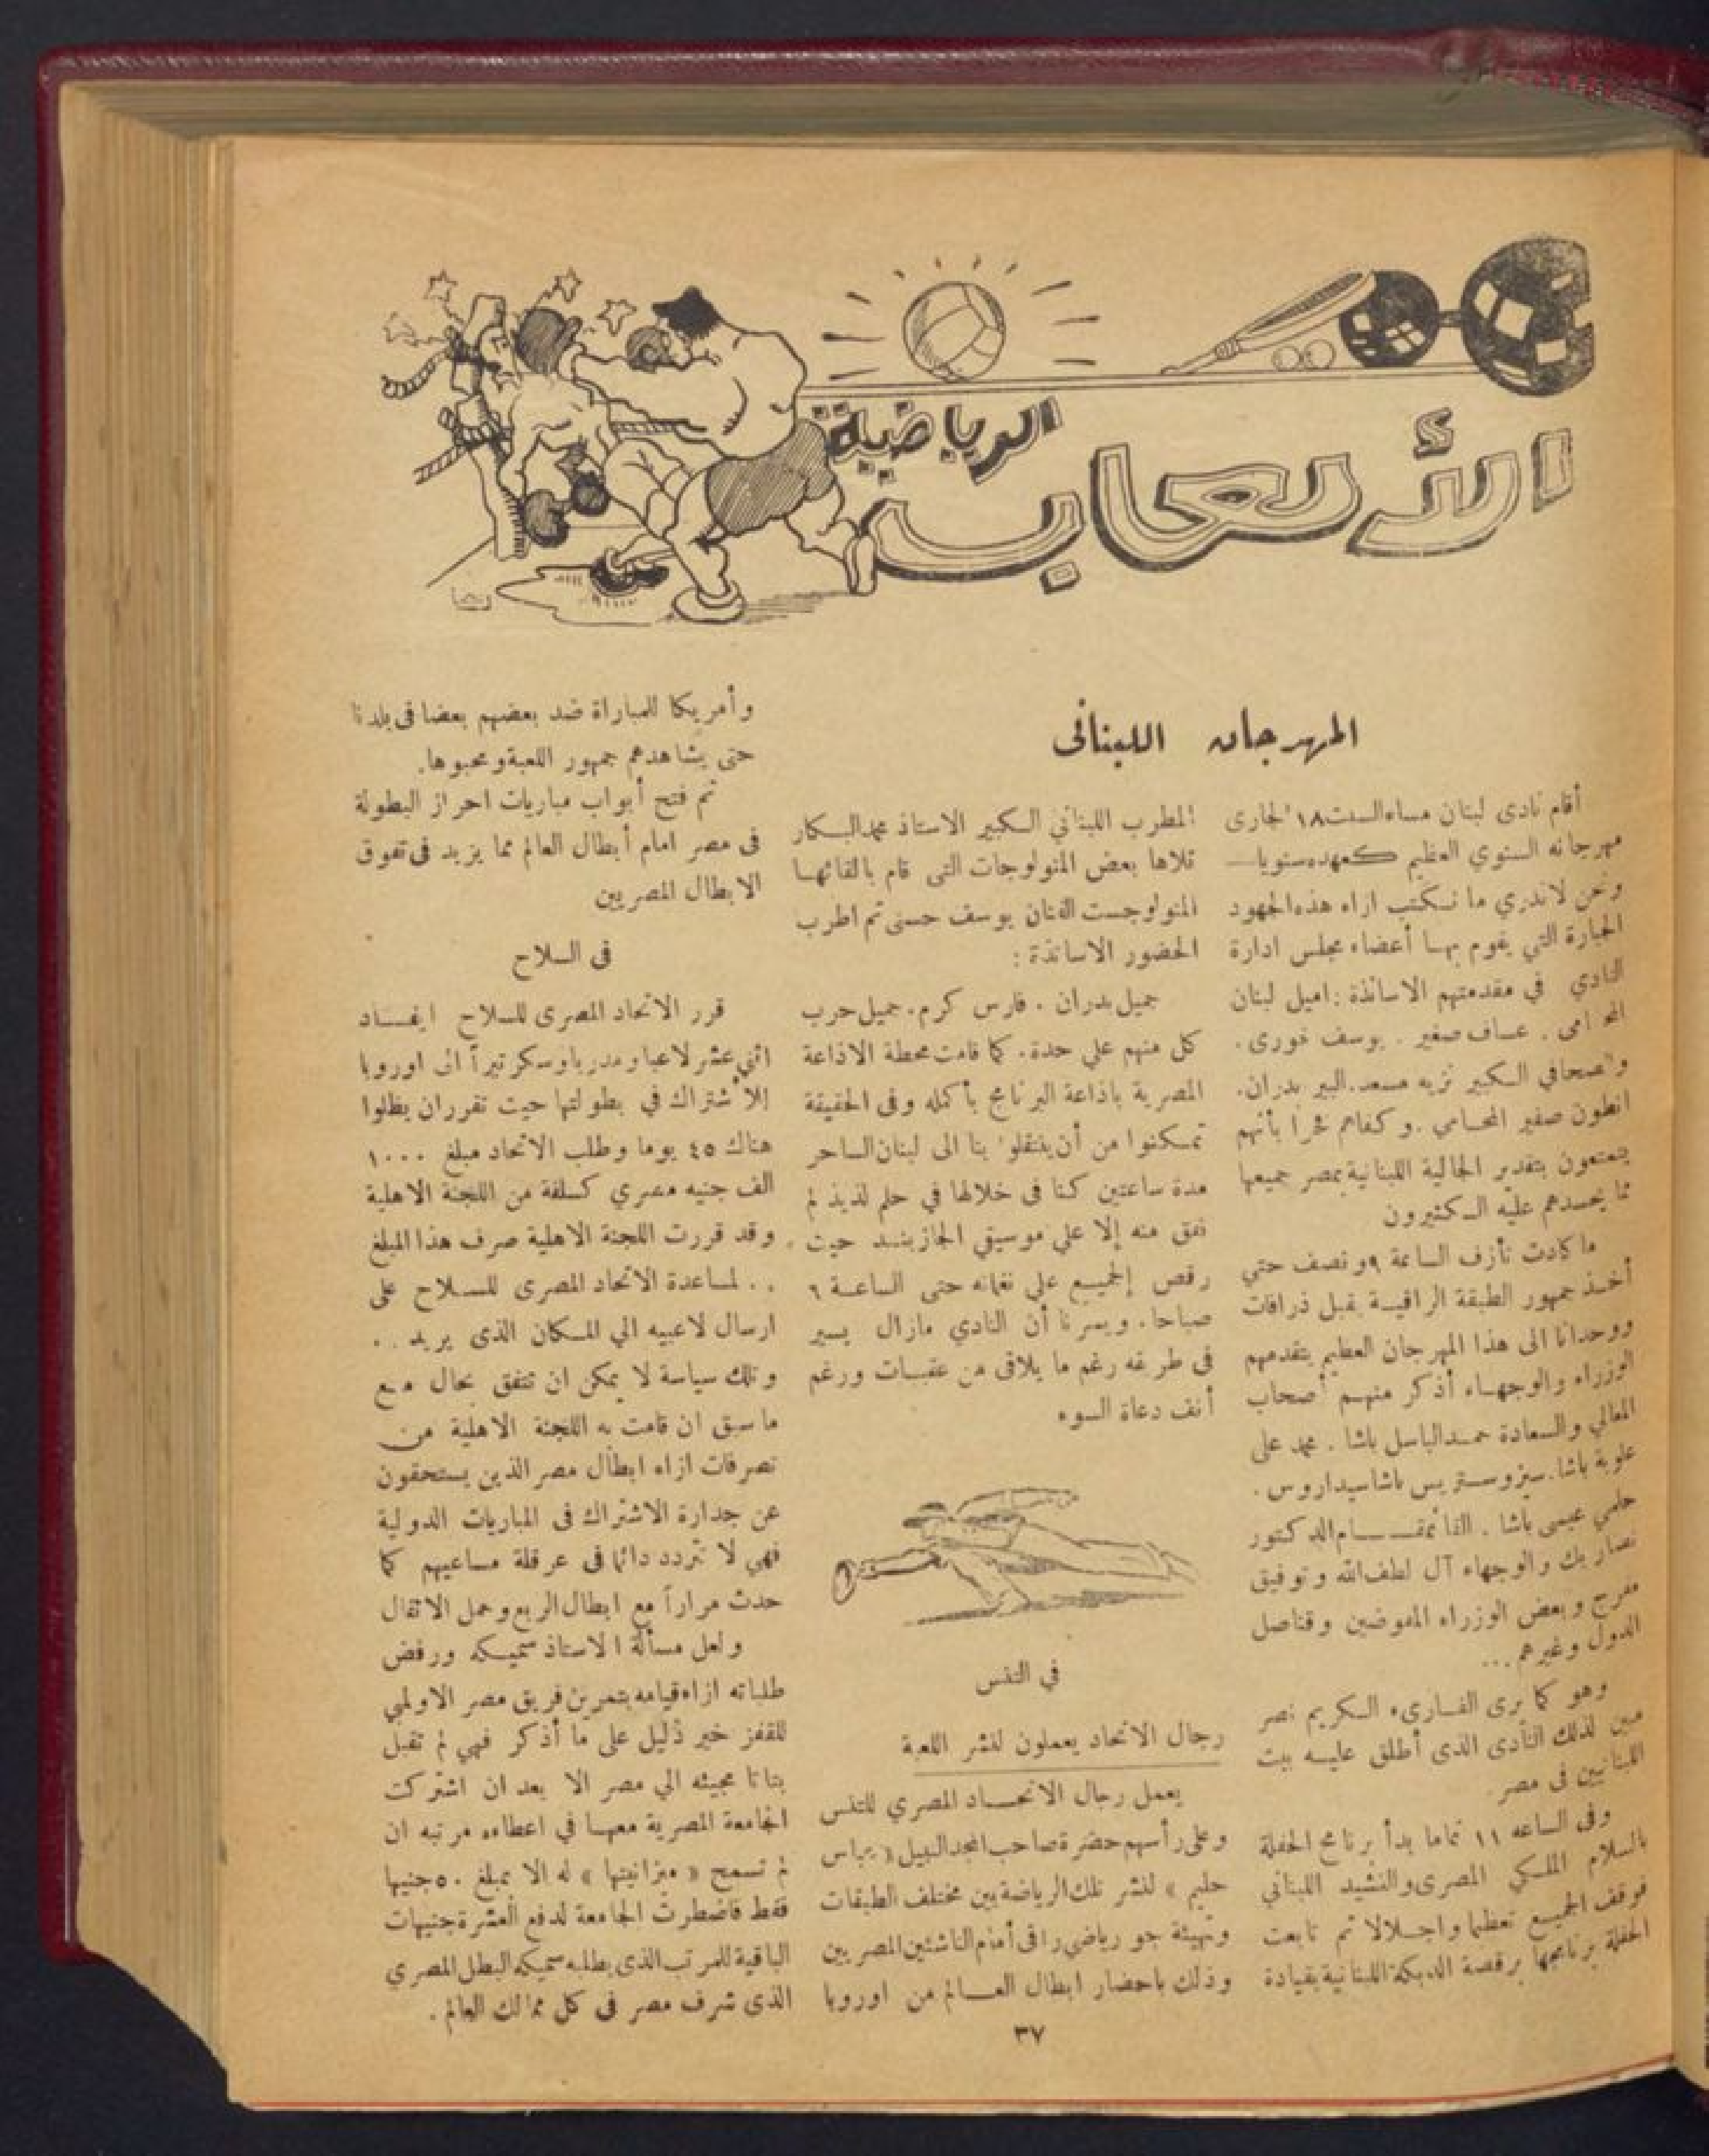 الألعاب
الرياضية
رضا
المهرجان اللبنانى
أقام نادى لبنان مساء السبت ١٨ الجارى
مهرجانه السنوي العظيم كعهده سنويا
ونحن لا ندري ما نكتب ازاء هذه الجهود
الجبارة التي يقوم بها أعضاء مجلس ادارة
النادي في مقدمتهم الاساتذة : اميل لبنان
المحامى . عساف صفير . يوسف خورى .
والصحافي الكبير نزيه مسعد . البير بدران .
انطون صفير المحامي . وكفاهم فخراً بأنهم
يتمتعون بتقدير الجالية اللبنانية بمصر جميعها
مما يحسدهم عليه الكثيرون
ما كادت تأزف الساعة ٩ ونصف حتي
أخذ جمهور الطبقة الراقية يقبل ذرافات
ووحدانا الى هذا المهرجان العظيم يتقدمهم
الوزراء والوجهاء أذكر منهم أصحاب
المعالي والسعادة حمد الباسل باشا . محمد على
علوبة باشا . سيزوستريس باشا سيداروس .
حلمي عيسى باشا . القائمقام الدكتور
نصار بك والوجهاء آل لطف الله وتوفيق
مفرج وبعض الوزراء المفوضين وقناصل
الدول وغيرهم ...
وهو كما يرى القارىء الكريم نصر
مبين لذلك النادى الذى أطلق عليه بيت
اللبنانيين فى مصر .
وفى الساعه ١١ تماما بدأ برنامج الحفلة
بالسلام الملكي المصرى والنشيد اللبناني
فوقف الجميع تعظيما واجلالا ثم تابعت
الحفلة برنامجها برقصة الدبكة اللبنانية بقيادة
المطرب اللبناني الكبير الاستاذ محمد البكار
تلاها بعض المنولوجات التى قام بالقائها
المنولوجست الفنان يوسف حسنى ثم اطرب
الحضور الاساتذة :
جميل بدران . فارس كرم . جميل حرب
كل منهم علي حدة . كما قامت محطة الاذاعة
المصرية باذاعة البرنامج بأكمله وفى الحقيقة
تمكنوا من أن ينتقلوا بنا الى لبنان الساحر
مدة ساعتين كنا فى خلالها في حلم لذيذ لم
نفق منه إلا علي موسيقي الجازبند حيث
رقص الجميع علي نغماته حتى الساعة ٦
صباحا . ويسرنا أن النادي مازال يسير
فى طريقه رغم ما يلاقى من عقبات ورغم
أنف دعاة السوء
في التنس
رجال الاتحاد يعملون لنشر اللعبة
يعمل رجال الاتحاد المصري للتنس
وعلى رأسهم حضرة صاحب المجد النبيل « عباس
حليم » لنشر تلك الرياضة بين مختلف الطبقات
وتهيئة جو رياضي راقى أمام الناشئين المصريين
وذلك باحضار ابطال العالم من اوروبا
وأمريكا للمباراة ضد بعضهم بعضا فى بلدنا
حتى يشاهدهم جمهور اللعبة ومحبوها.
ثم فتح أبواب مباريات احراز البطولة
فى مصر امام أبطال العالم مما يزيد فى تفوق
الابطال المصريين
فى السلاح
قرر الاتحاد المصرى للسلاح ايفاد
اثني عشر لاعبا ومدربا وسكرتيرا الى اوروبا
للاشتراك في بطولتها حيث تقرر ان يظلوا
هناك ٤٥ يوما وطلب الاتحاد مبلغ ١٠٠٠
الف جنيه مصري كسلفة من اللجنة الاهلية
وقد قررت اللجنة الاهلية صرف هذا المبلغ
. . لمساعدة الاتحاد المصرى للسلاح على
ارسال لاعبيه الي المكان الذى يريد . .
وتلك سياسة لا يمكن ان تتفق بحال مع
ما سبق ان قامت به اللجنة الاهلية من
تصرفات ازاء ابطال مصر الذين يستحقون
عن جدارة الاشتراك فى المباريات الدولية
فهي لا تتردد دائما فى عرقلة مساعيهم كما
حدث مراراً مع ابطال الربع وحمل الاثقال
ولعل مسألة الاستاذ سميكه ورفض
طلباته ازاء قيامه بتمرين فريق مصر الاولمبي
للقفز خير دليل على ما أذكر فهي لم تقبل
بتاتا مجيئه الي مصر الا بعد ان اشتركت
الجامعة المصرية معها في اعطاءه مرتبه ان
لم تسمح « ميزانيتها » له الا بمبلغ ٥٠ جنيها
فقط فاضطرت الجامعة لدفع العشرة جنيهات
الباقية للمرتب الذى يطلبه سميكه البطل المصري
الذى شرف مصر فى كل ممالك العالم .
٣٧